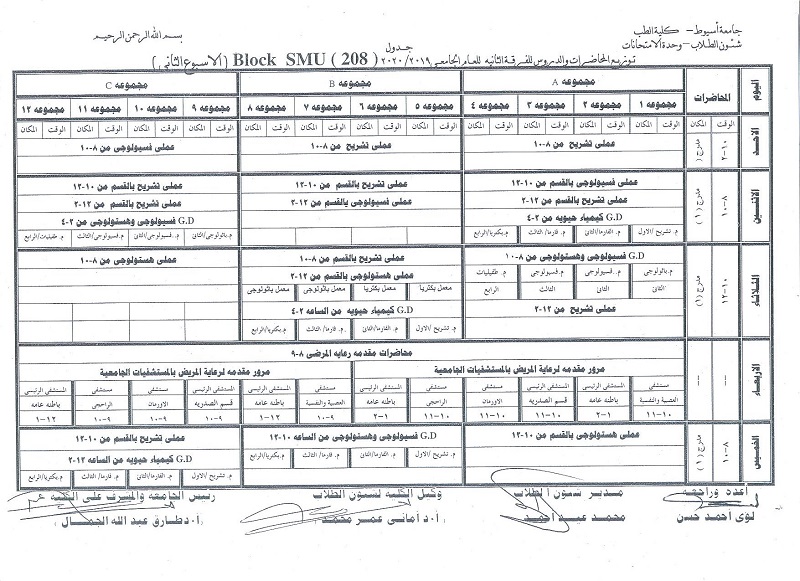 جامعة أسيوط - كلية الطب
شئون الطلاب - وحدة الامتحانات
بسم الله الرحمن الرحيم
جدول
توزيع المحاضرات والدروس للفرقة الثانيه للعام الجامعى ٢٠٢٠/٢٠١٩ Block SMU ( 208 ) (الاسبوع الثانى)
اليوم المحاضرات مجموعه A مجموعه B مجموعه C
مجموعه ١ مجموعه ٢ مجموعه ٣ مجموعه ٤ مجموعه ٥ مجموعه ٦ مجموعه ٧ مجموعه ٨ مجموعه ٩ مجموعه ١٠ مجموعه ١١ مجموعه ١٢
الوقت المكان الوقت المكان الوقت المكان الوقت المكان الوقت المكان الوقت المكان الوقت المكان الوقت المكان الوقت المكان الوقت المكان الوقت المكان الوقت المكان الوقت المكان
الاحد ١٠-٢ مدرج عملى تشريح من ٨-١٠ عملى تشريح من ٨-١٠ عملى فسيولوجى من ٨-١٠
الاثنين ٨-١٠ مدرج (١) عملى فسيولوجى بالقسم من ١٠-١٢ عملى تشريح بالقسم من ١٠-١٢ عملى تشريح بالقسم من ١٠-١٢
عملى تشريح من ١٢-٢ عملى فسيولوجى بالقسم من ١٢-٢ عملى تشريح من ١٢-٢
G.D كيمياء حيويه من ٢-٤ G.D فسيولوجى وهستولوجى من ٢-٤
م. تشريح/الاول م. الفارما/الثانى م. فارما/الثالث م.بكتريا/الرابع م. باثولوجى/الثانى م. فسيولوجى/الثانى م.فسيولوجى/الثالث م. طفيليات/الرابع
الثلاثاء ١٠-١٢ مدرج (٦) G.D فسيولوجى وهستولوجى من ٨-١٠ عملى تشريح بالقسم من ٨-١٠ عملى هستولوجى من ٨-١٠
م.باثولوجى الثانى م.فسيولوجى الثانى م.فسيولوجى الثالث م. طفيليات الرابع عملى هستولوجى بالقسم من ١٢-٢
معمل بكتريا معمل بكتريا معمل باثولوجى معمل باثولوجى
عملى تشريح من ١٢-٢ G.D كيمياء حيويه من الساعه ٢-٤
م. تشريح/الاول م. الفارما/الثانى م. فارما/الثالث م.بكتريا/الرابع
الاربعاء محاضرات مقدمه رعايه المرضى ٨-٩
مرور مقدمه لرعاية المريض بالمستشفيات الجامعية مرور مقدمه لرعاية المريض بالمستشفيات الجامعية
مستشفى العصبية والنفسية المستشفى الرئيسى باطنه عامه المستشفى الرئيسى قسم الصدريه مستشفى الاورمان مستشفى الراجحى المستشفى الرئيسى باطنه عامه مستشفى العصبية والنفسية المستشفى الرئيسى باطنه عامه المستشفى الرئيسى قسم الصدريه مستشفى الاورمان مستشفى الراجحى المستشفى الرئيسى باطنه عامه
١٠-١١ ١-٢ ١٠-١١ ١٠-١١ ١٠-١١ ١-٢ ٩-١٠ ١٢-١ ٩-١٠ ٩-١٠ ٩-١٠ ١٢-١
الخميس ٨-١٠ مدرج (٦) عملى هستولوجى من ١٠-١٢ G.D فسيولوجى وهستولوجى من الساعه ١٠-١٢ عملى تشريح بالقسم من ١٠-١٢
G.D كيمياء حيويه من الساعه ١٢-٢
م. تشريح/الاول م. الفارما/الثانى م. فارما/الثالث م.بكتريا/الرابع
أعده وراجعه مدير شئون الطلاب وكيل الكليه لشئون الطلاب رئيس الجامعه والمشرف على الكليه
لؤى أحمد حسن محمد عيد أحمد أ.د أمانى عمر محمد أ.د طارق عبد الله الجمال